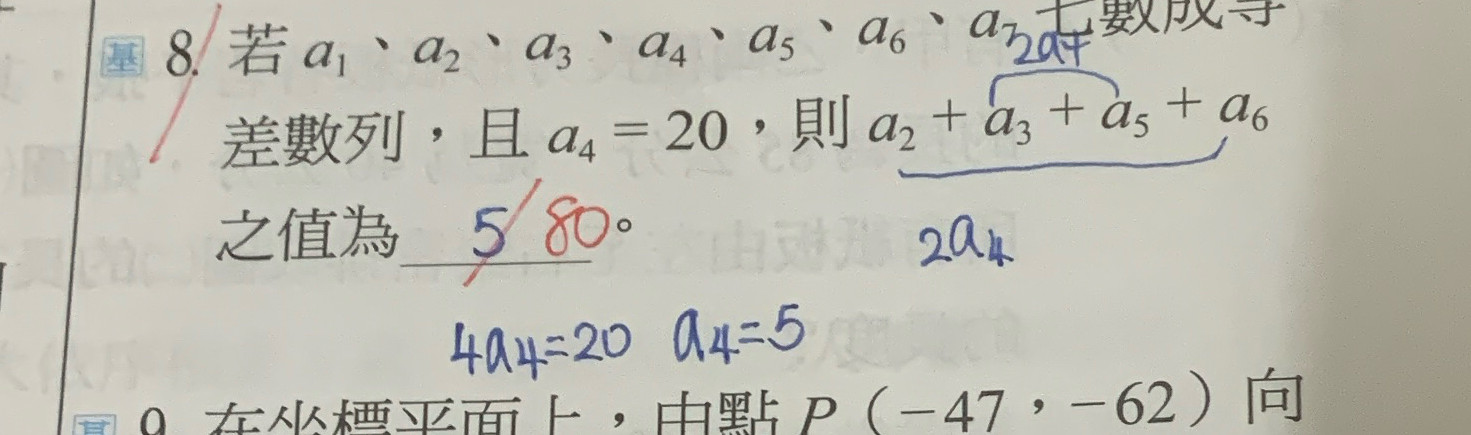 基 8. 若 a₁、a₂、a₃、a₄、a₅、a₆、a₇ 七數成等
2a₄
差數列，且 a₄ = 20，則 a₂ + a₃ + a₅ + a₆
之值為 5 80。
2a₄
4a₄=20 a₄=5
基 9. 在坐標平面上，由點 P（−47，−62）向